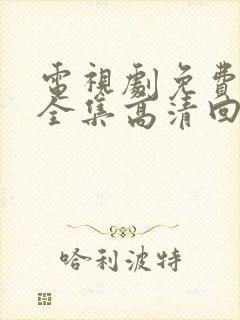 電視劇免費
全集高清回
哈利波特